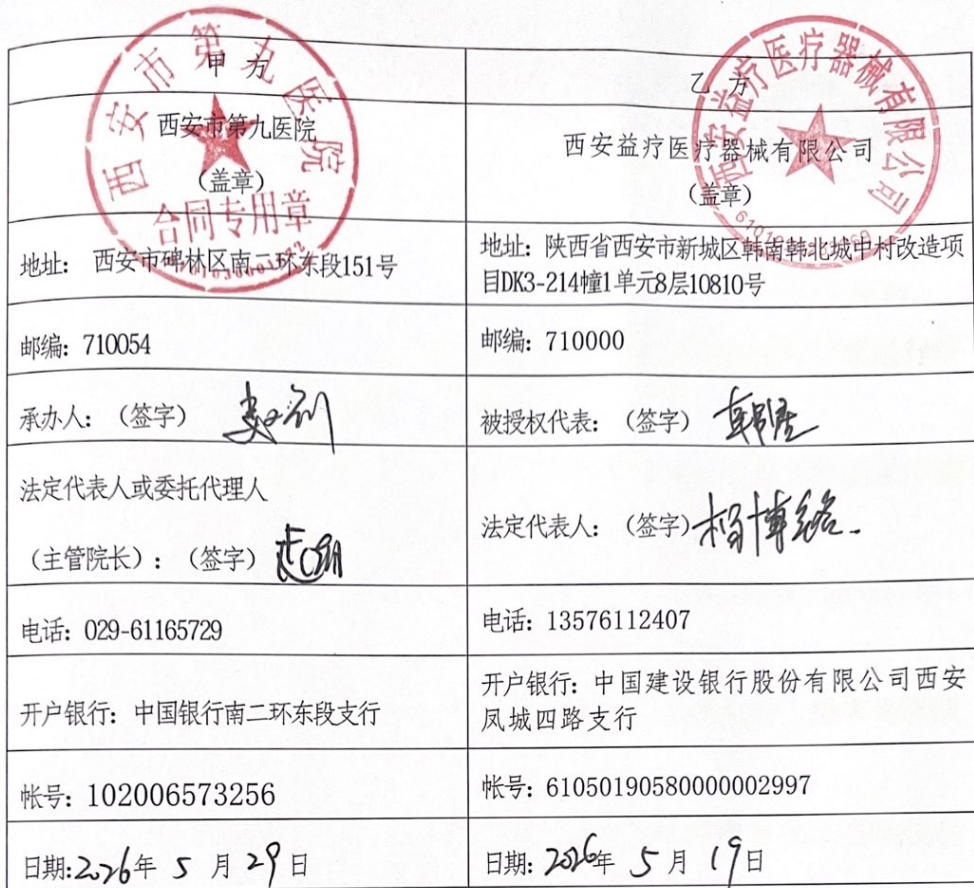 西安市第九医院
合同专用章
西安益疗医疗器械有限公司
甲方
乙方
西安市第九医院
(盖章)
西安益疗医疗器械有限公司
(盖章)
地址: 西安市碑林区南二环东段151号
地址: 陕西省西安市新城区韩南韩北城中村改造项
目DK3-214幢1单元8层10810号
邮编: 710054
邮编: 710000
承办人: (签字)
被授权代表: (签字)
法定代表人或委托代理人
(主管院长): (签字)
法定代表人: (签字)
电话: 029-61165729
电话: 13576112407
开户银行: 中国银行南二环东段支行
开户银行: 中国建设银行股份有限公司西安
凤城四路支行
帐号: 102006573256
帐号: 61050190580000002997
日期: 2026年 5 月 29 日
日期: 2026年 5 月 19 日